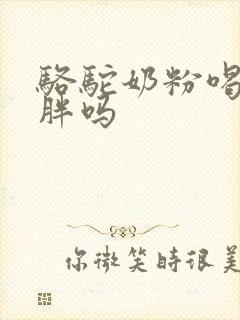 骆驼奶粉喝
胖吗
你微笑时很美